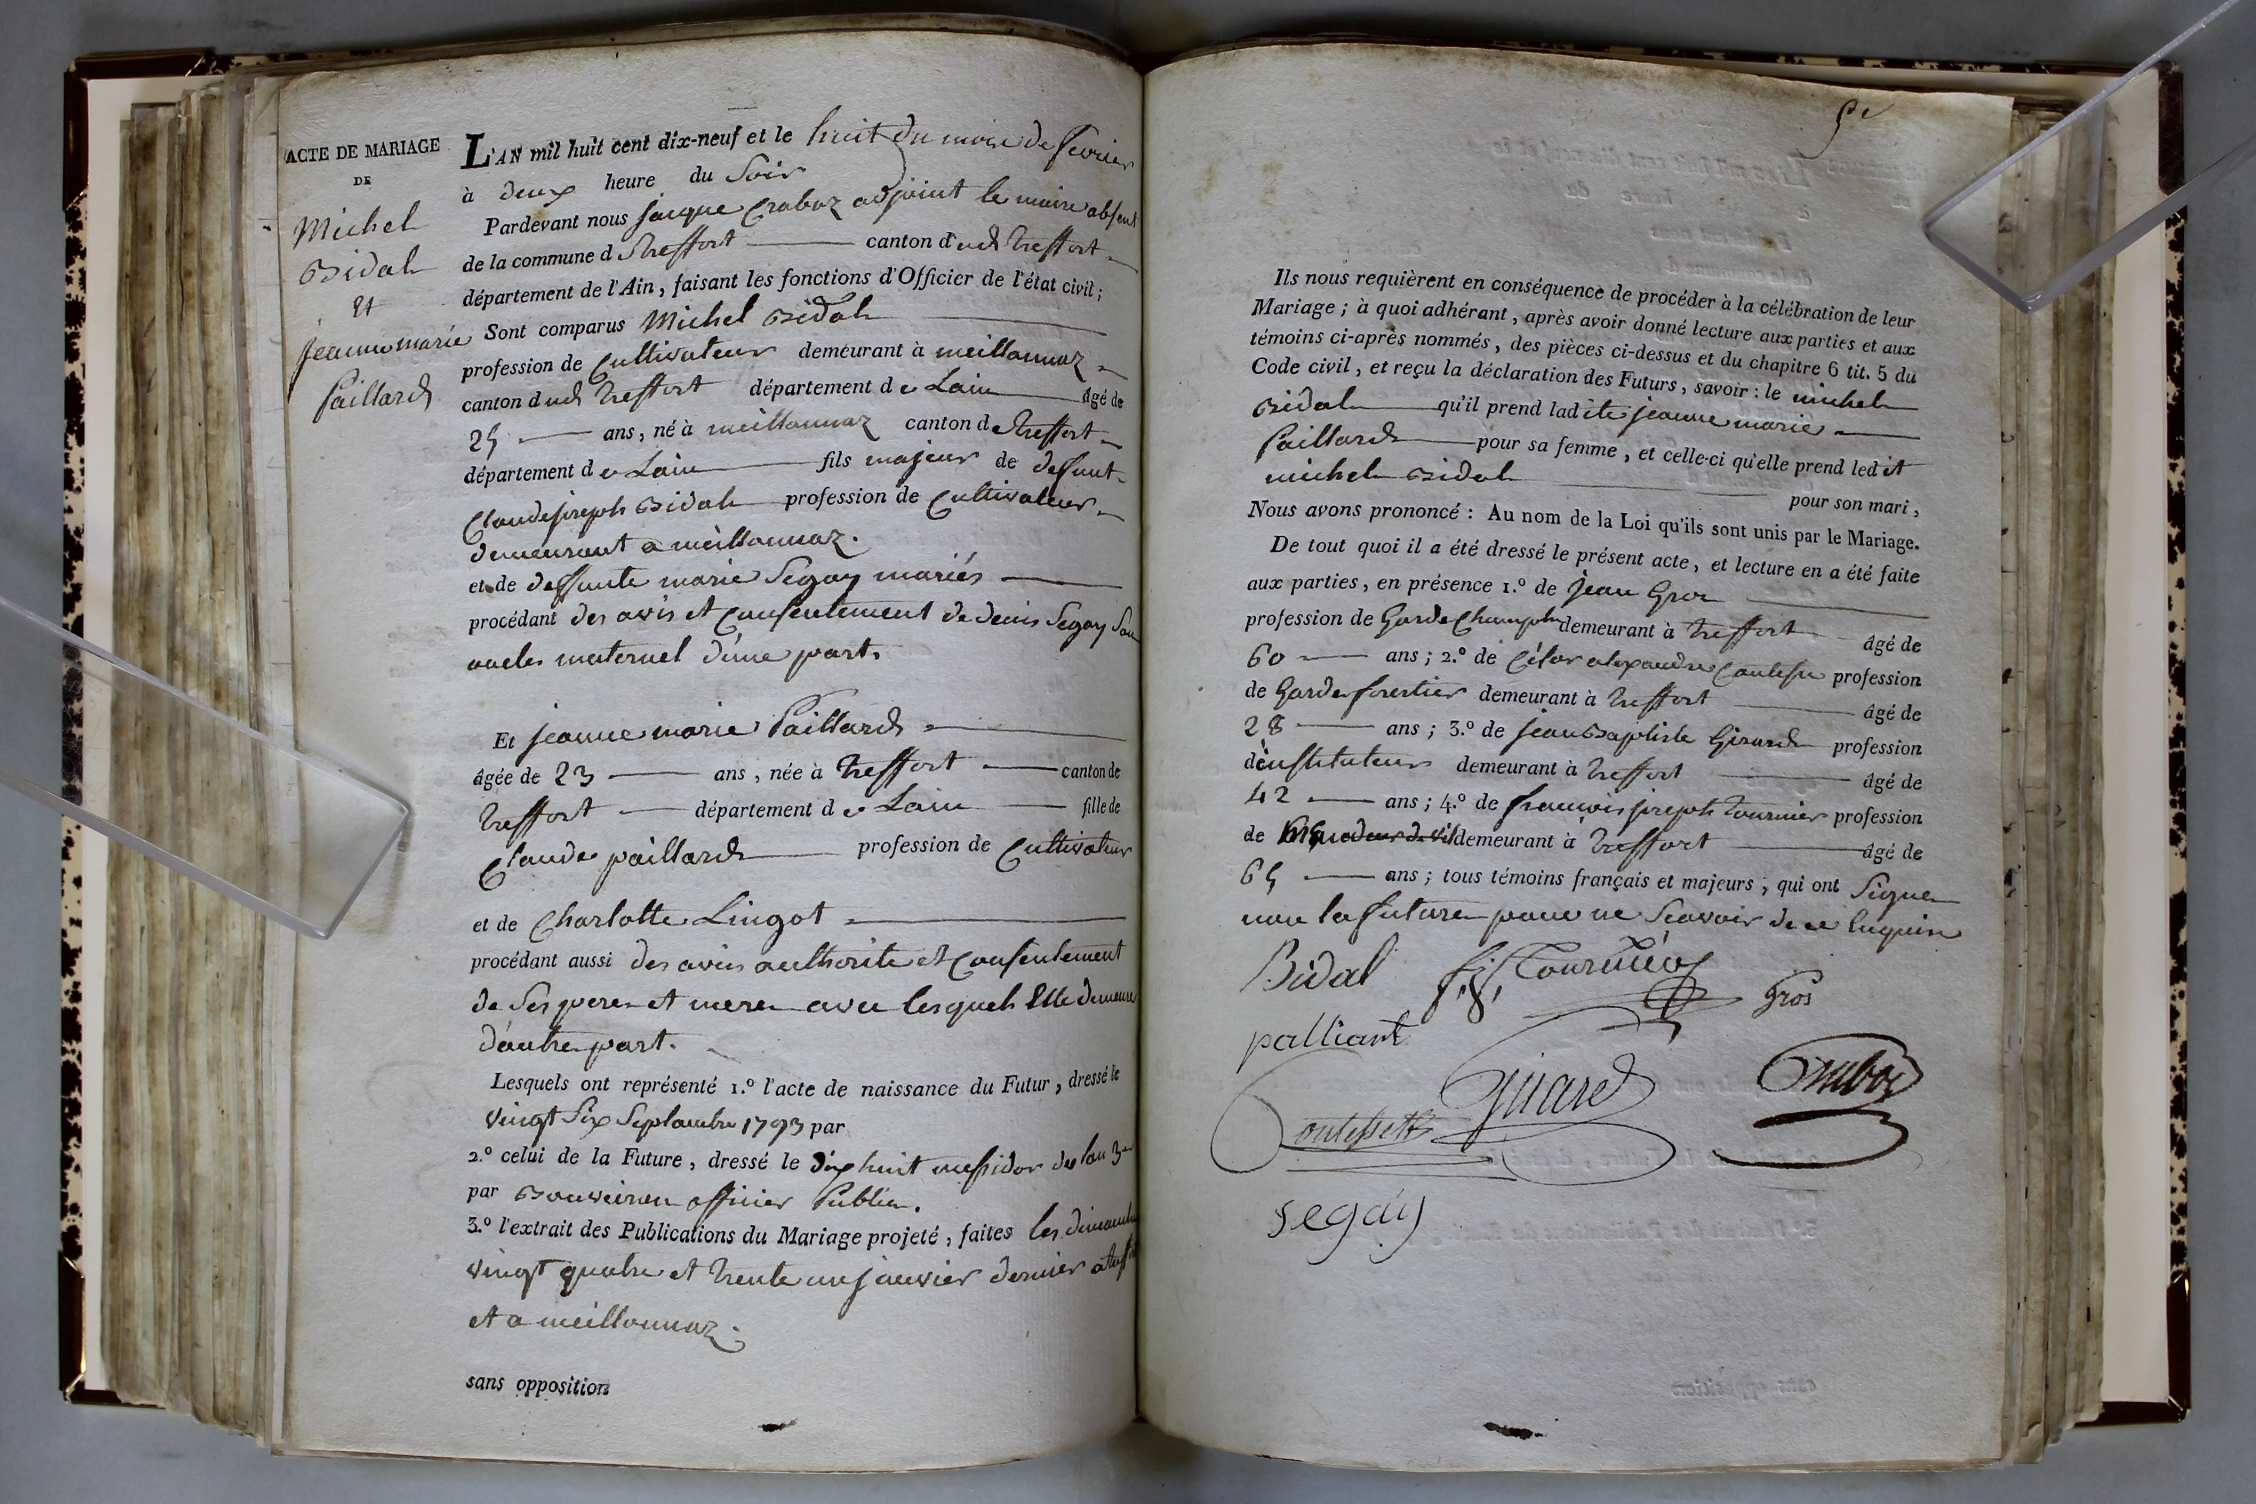 ACTE DE MARIAGE
DE
Michel
Bidal
Et
jeanne marie
Paillard
L'AN mil huit cent dix-neuf et le huit du mois de fevrier
à deux heure du Soir
Pardevant nous jacque Crabaz adjoint le maire absent
de la commune d Treffort canton dudt treffort
département de l'Ain, faisant les fonctions d'Officier de l'état civil;
Sont comparus Michel Bidal
profession de Cultivateur demeurant à meillonnaz
canton dudt treffort département de Lain âgé de
25 ans, né à meillonnaz canton de treffort
département de Lain fils majeur de defunt
Claude joseph Bidal profession de Cultivateur
demeurant a meillonnaz.
et de deffunte marie Segay mariés
procédant des avis et Consentement de denis Segay Son
oncle maternel d'une part.
Et jeanne marie Paillard
âgée de 23 ans, née à treffort canton de
treffort département de Lain fille de
Claude paillard profession de Cultivateur
et de Charlotte Lingot
procédant aussi des avis authorite et Consentement
de Ses pere et mere avec lesquels Elle demeure
d'autre part.
Lesquels ont représenté 1.º l'acte de naissance du Futur, dressé le
vingt Six Septembre 1793 par
2.º celui de la Future, dressé le dix huit messidor de lan 3e
par officier Public.
3.º l'extrait des Publications du Mariage projeté, faites les dimanches
vingt quatre et trente un janvier dernier a treffort
et a meillonnaz.
sans opposition
Ils nous requièrent en conséquence de procéder à la célébration de leur
Mariage; à quoi adhérant, après avoir donné lecture aux parties et aux
témoins ci-après nommés, des pièces ci-dessus et du chapitre 6 tit. 5 du
Code civil, et reçu la déclaration des Futurs, savoir: le michel
Bidal qu'il prend ladite jeanne marie
Paillard pour sa femme, et celle-ci qu'elle prend ledit
michel Bidal pour son mari,
Nous avons prononcé: Au nom de la Loi qu'ils sont unis par le Mariage.
De tout quoi il a été dressé le présent acte, et lecture en a été faite
aux parties, en présence 1.º de jean Gros
profession de Garde Champetre demeurant à treffort âgé de
60 ans; 2.º de César alexandre profession
de Garde forestier demeurant à treffort âgé de
28 ans; 3.º de jean Baptiste Girard profession
d'instituteur demeurant à treffort âgé de
42 ans; 4.º de francois joseph tournier profession
de demeurant à treffort âgé de
65 ans; tous témoins français et majeurs, qui ont Signe
non la future pour ne Scavoir de ce Enquise
Bidal f. j. Tournier
Gros
palliard
Girard
Crabaz
segay